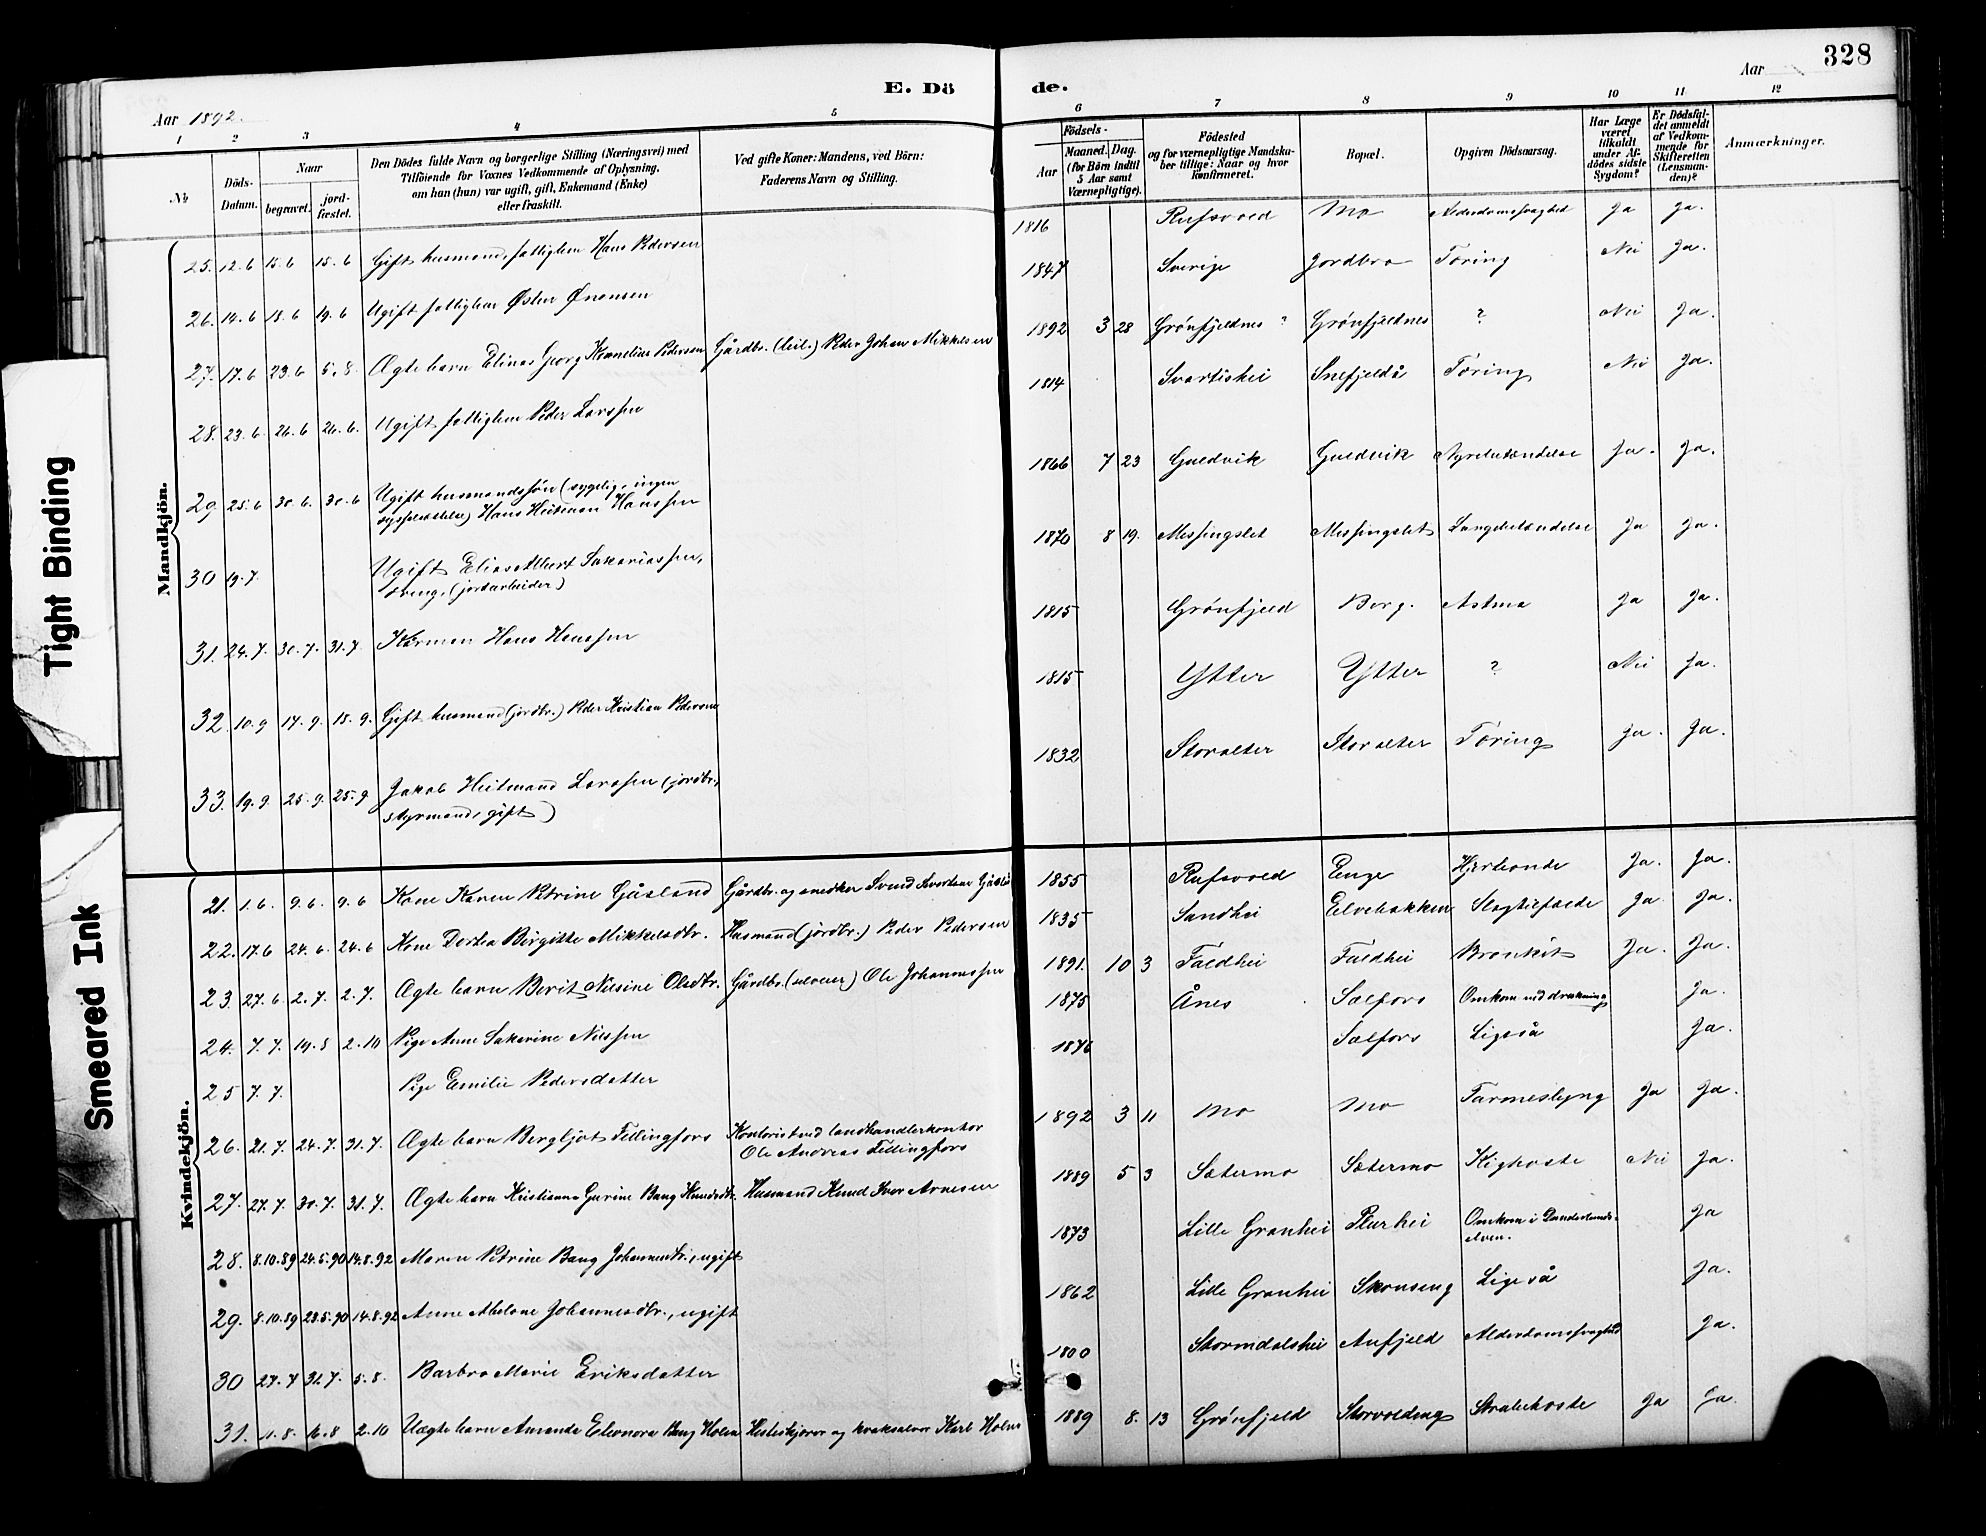 328
E. Dö de.
Aar 1892.
Aar
1 2 3 4 5 6 7 8 9 10 11 12
No
Döds-Datum.
Naar
begravet.
jord-fæstet.
Den Dödes fulde Navn og borgerlige Stilling (Næringsvei) med
Tilföiende for Voxnes Vedkommende af Oplysning,
om han (hun) var ugift, gift, Enkemand (Enke)
eller fraskilt.
Ved gifte Koner: Mandens, ved Börn:
Faderens Navn og Stilling.
Födsels-
Aar
Maaned. Dag.
(for Börn indtil
5 Aar samt
Værnepligtige).
Födested
og for værnepligtige Mandska-
ber tillige: Naar og hvor
konfirmeret.
Bopæl.
Opgiven Dödsaarsag.
Har Læge
været
tilkaldt
under Af-
dödes sidste
Sygdom?
Er Dödsfal-
det anmeldt
af Vedkom-
mende for
Skifteretten
(Lensman-
den)?
Anmærkninger.
Mandkjön.
25. 12.6 15.6 15.6 Gift husmand, fattiglem Hans Pedersen 1816 Rufsvold Mo Alderdomssvaghed Ja Ja.
26. 14.6 18.6 19.6 Ugift fattiglem Østen Ønensen 1847 Sverige Jordbro Tæring Nei Ja.
27. 17.6 23.6 5.8. Ægte barn Elinas Georg Kornelius Pedersen Gårdbr. (leil.) Peder Johan Mikkelsen 1892 3 28 Grønfjeldnes ? Grønfjeldnes ? Nei Ja.
28. 23.6 26.6 26.6. Ugift fattiglem Peder Larssen 1814 Svartishei Snefjeldå Tæring Nei Ja.
29 25.6 30.6. 30.6 Ugift husmandssøn (sygelig, ingen
sysselsættelse) Hans Heitman Hanssen 1866 7 23 Guldvik Guldvik Nyrebetændelse Ja. Ja.
30 19.7. Ugift Elias Albert Sakariassen,
dreng, (jordarbeider) 1870 8 19. Messingslet Messingslet Lungebetændelse Ja Ja.
31. 24.7. 30.7. 31.7. Kårman Hans Hanssen 1815 Grønfjeld Berg. Astma Ja Ja.
32. 10.9 17.9. 18.9. Gift husmand (jordbr.) Peder Kristian Pedersen 1815 Ytter Ytter ? Nei Ja.
33. 19.9. 25.9. 25.9 Jakob Heitmand Larssen (jordbr.,
styrmand, gift) 1832 Storalter Storalter Tæring Ja. Ja.
Kvindekjön.
21. 1.6. 9.6. 9.6 Kone Karen Petrine Gåsland Gårdbr. og snedker Svend Svendsen 1855 Rufsvold Enge Hjerteonde Ja. Ja.
22. 17.6 24.6. 24.6 Kone Dortea Birgitte Mikkelsdtr. Husmand (jordbr.) Peder Pedersen 1835 Sandhei Elvebakken Slagtilfælde Ja Ja.
23. 27.6. 2.7. 2.7. Ægte barn Berit Nilsine Olsdtr. Gårdbr. (selveier) Ole Johannessen 1891. 10 3 Faldhei Faldhei Bronkit Ja. Ja.
24. 7.7. 19.8 2.10 Pige Anne Sakarine Nilssen 1875 Ånes Sælfors Omkom ved drukning Ja.
25 7.7. Pige Emilie Pedersdatter 1876 Sælfors Ligeså Ja.
26. 21.7. 24.7. 31.7. Ægte barn Bergljot Fellingfors Kontorist ved landhandlerkontor
Ole Andreas Fellingfors 1892 3 11 Mo Mo Tarmeslyng Ja Ja.
27. 27.7. 30.7. 31.7. Ægte barn Kristianna Gurine Bang Knudsdtr. Husmand Knud Iver Arnesen 1889 5 3 Sætermo Sætermo Kighoste Nei Ja.
28. 8.10.89 24.5.90 14.8.92 Maren Petrine Bang Johannesdtr., ugift 1873 Lille Granhei Plurhei Omkom i Dunderlands-
elven. Ja
29. 8.10.89 23.5.90 14.8.92 Anne Abelone Johannesdtr., ugift 1862 Lille Granhei Skonseng Ligeså Ja.
30 27.7 31.7. 5.8. Barbro Marie Eriksdatter 1800 Stormdalshei Aufjeld Alderdomssvaghed Ja.
31. 1.8. 6.8 2.10 Uægte barn Amanda Eleonora Bang Holm Hesteskjærer og kvaksalver Karl Holm 1889 8. 13 Grønfjeld Storvolding Strubehoste Ja Ja.
Tight Binding
Smeared Ink